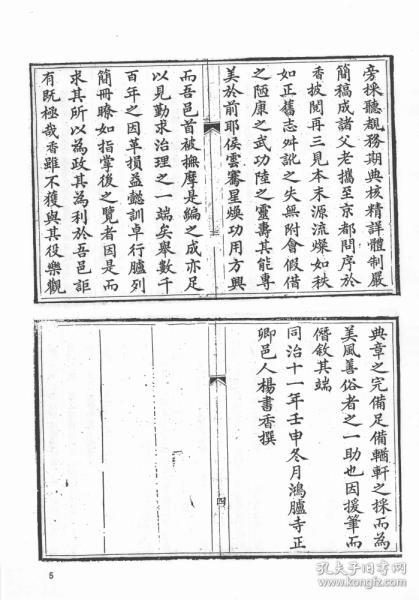 旁採聽覩務期典核精詳體制嚴
簡稿成諸父老攜至京都問序於
香披閱再三見本末源流燦如秩
如正舊志舛訛之失無附會假借
之陋康之武功陸之靈壽其能專
美於前耶侯雲騫星煥功用方興
而吾邑首被撫摩是編之成亦足
以見勤求治理之一端矣舉數千
百年之因革損益懿訓卓行臚列
簡冊瞭如指掌後之覽者因是而
求其所以為政其為利於吾邑詎
有既極哉香雖不獲與其役樂觀
三
典章之完備足備輶軒之採而為
美風善俗者之一助也因援筆而
僭敘其端
同治十一年壬申冬月鴻臚寺正
卿邑人楊書香撰
四
5
孔夫子旧书网
www.kongfz.com